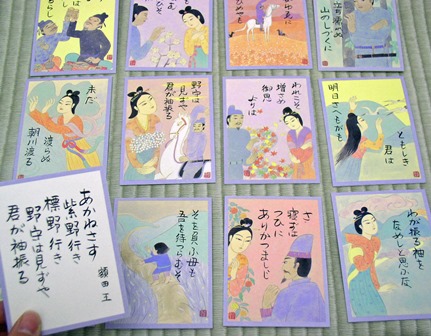 山のしづくに
未だ
渡らぬ
朝川渡る
野守は
見ずや
君が袖振る
われこそ
増さめ
御思
よりは
明日さへもがも
ともしき
君は
あかねさす
紫野行き
標野行き
野守は見ずや
君が袖振る
額田王
そを負ふ母も
吾を待つらむそ
さ寝ずは
つひに
ありかつましじ
わが振る袖を
なめしと思ふな